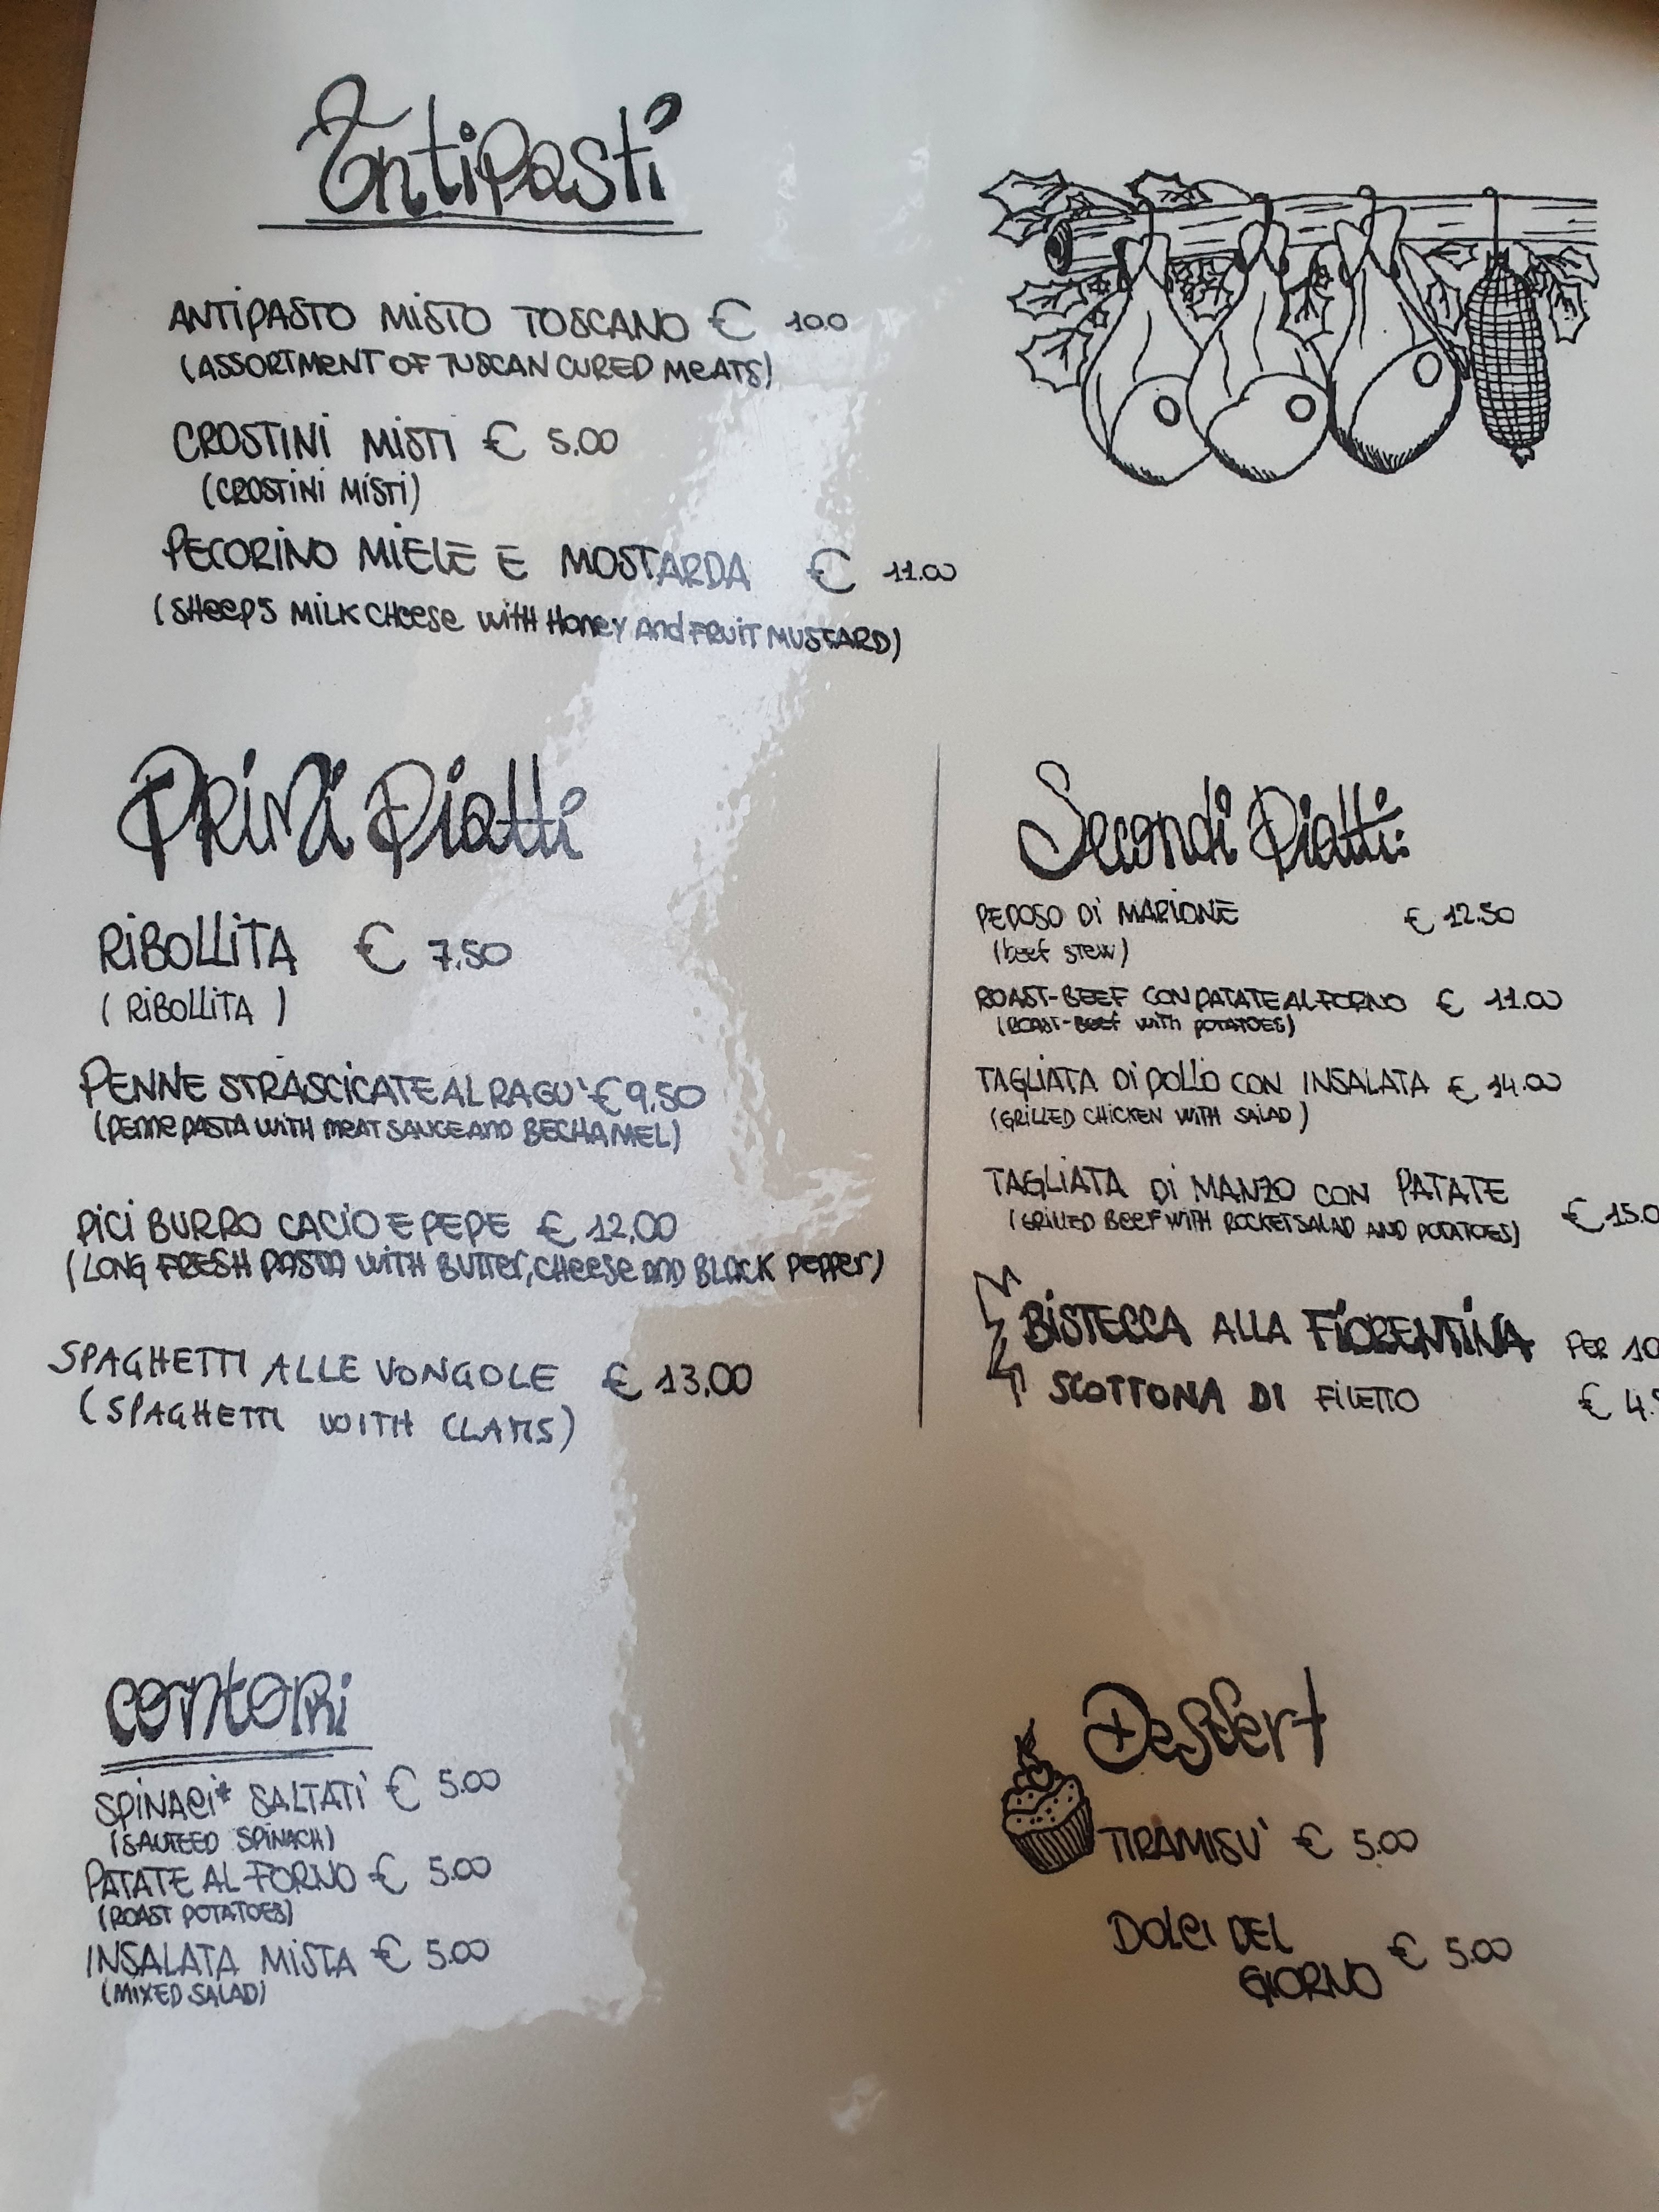 Antipasti
ANTIPASTO MISTO TOSCANO € 10.0
(ASSORTMENT OF TUSCAN CURED MEATS)
CROSTINI MISTI € 5.00
(CROSTINI MISTI)
PECORINO MIELE E MOSTARDA € 11.00
(SHEEP'S MILK CHEESE WITH HONEY AND FRUIT MUSTARD)
PRIMI Piatti
RIBOLLITA € 7,50
(RIBOLLITA)
PENNE STRASCICATE AL RAGU' € 9,50
(PENNE PASTA WITH MEAT SAUCE AND BECHAMEL)
PICI BURRO CACIO E PEPE € 12,00
(LONG FRESH PASTA WITH BUTTER, CHEESE AND BLACK PEPPER)
SPAGHETTI ALLE VONGOLE € 13,00
(SPAGHETTI WITH CLAMS)
Secondi Piatti:
PEPOSO DI MARIONE € 12.50
(beef STEW)
ROAST-BEEF CON PATATE AL FORNO € 11.00
(ROAST-BEEF WITH POTATOES)
TAGLIATA DI POLLO CON INSALATA € 14.00
(GRILLED CHICKEN WITH SALAD)
TAGLIATA DI MANZO CON PATATE
(GRILLED BEEF WITH ROCKET SALAD AND POTATOES) € 15.0
BISTECCA ALLA FIORENTINA PER 10
SCOTTONA DI FILETTO € 4.
CONTORNI
SPINACI* SALTATI € 5.00
(SAUTEED SPINACH)
PATATE AL FORNO € 5.00
(ROAST POTATOES)
INSALATA MISTA € 5.00
(MIXED SALAD)
Dessert
TIRAMISU' € 5.00
DOLCI DEL
GIORNO € 5.00